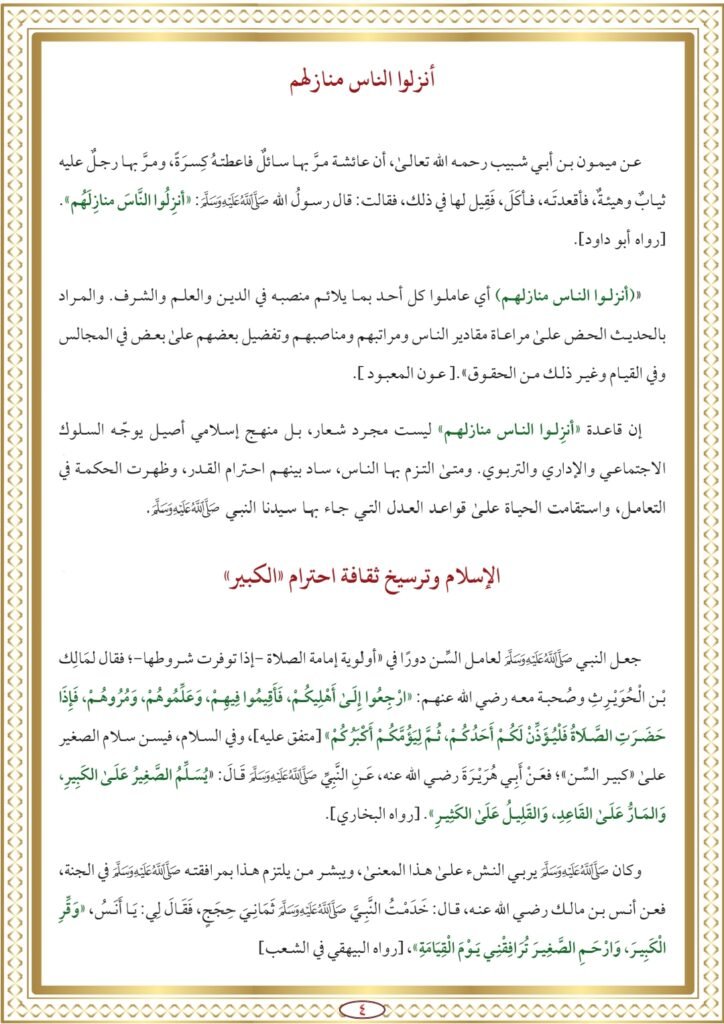 أنزلوا الناس منازلهم
عـن ميمـون بـن أبـي شـبيب رحمـه الله تعالـىٰ، أن عائشـة مـرَّ بهـا سـائلٌ فاعطتـهُ كِسـرَةً، ومـرَّ بهـا رجـلٌ عليه
ثيـابٌ وهيئـةٌ، فأقعدتَـه، فـأكَلَ، فَقِيـل لهـا في ذلـك، فقالـت: قـال رسـولُ الله ﷺ: «أنزِلُوا النَّاسَ منازِلَهُم».
[رواه أبو داود].
«(أنزلـوا النـاس منازلهـم) أي عاملـوا كل أحـد بمـا يلائـم منصبـه في الديـن والعلـم والشـرف. والمـراد
بالحديـث الحـض علـىٰ مراعـاة مقاديـر النـاس ومراتبهـم ومناصبهـم وتفضيـل بعضهـم علـىٰ بعـض في المجالس
وفي القيـام وغيـر ذلـك مـن الحقـوق».[ عـون المعبـود ].
إن قاعـدة «أنزِلـوا النـاس منازلهـم» ليسـت مجـرد شـعار، بـل منهـج إسـلامي أصيـل يوجّـه السـلوك
الاجتماعـي والإداري والتربـوي. ومتـىٰ التـزم بهـا النـاس، سـاد بينهـم احتـرام القـدر، وظهـرت الحكمـة في
التعامـل، واسـتقامت الحيـاة علـىٰ قواعـد العـدل التـي جـاء بهـا سـيدنا النبـي ﷺ.
الإسلام وترسيخ ثقافة احترام «الكبير»
جعـل النبـي ﷺ لعامـل السِّـن دورًا في «أولويـة إمامـة الصـلاة -إذا توفـرت شـروطها-؛ فقـال لمَالِـك
بْـن الْحُوَيْـرِثِ وصُحبـة معـه رضـي الله عنهـم: «ارْجِعُـوا إِلَـىٰ أَهْلِيكُـمْ، فَأَقِيمُـوا فِيهِـمْ، وَعَلِّمُوهُـمْ، وَمُرُوهُـمْ، فَإِذَا
حَضَـرَتِ الصَّـلَاةُ فَلْيُـؤَذِّنْ لَكُـمْ أَحَدُكُـمْ، ثُـمَّ لِيَؤُمَّكُـمْ أَكْبَرُكُـمْ» [متفق عليه]، وفي السـلام، فيسـن سـلام الصغير
علـىٰ «كبيـر السِّـن»؛ فعَـنْ أَبِـي هُرَيْـرَةَ رضـي الله عنـه، عَـنِ النَّبِـيِّ ﷺ قَـالَ: «يُسَـلِّمُ الصَّغِيـرُ عَلَـىٰ الكَبِيـرِ،
وَالمَـارُّ عَلَـىٰ القَاعِـدِ، وَالقَلِيـلُ عَلَـىٰ الكَثِيـرِ». [رواه البخاري].
وكان ﷺ يربـي النـشء علـىٰ هـذا المعنـىٰ، ويبشـر مـن يلتـزم هـذا بمرافقتـه ﷺ في الجنة،
فعـن أنـس بـن مالـك رضـي الله عنـه، قـال: خَدَمْـتُ النَّبِـيَّ ﷺ ثَمَانِـيَ حِجَـجٍ، فَقَـالَ لِـي: يَـا أَنَـسُ، «وَقِّـرِ
الْكَبِيـرَ، وَارْحَـمِ الصَّغِيـرَ تُرَافِقْنِـي يَـوْمَ الْقِيَامَةِ»، [رواه البيهقي في الشعب]
٤